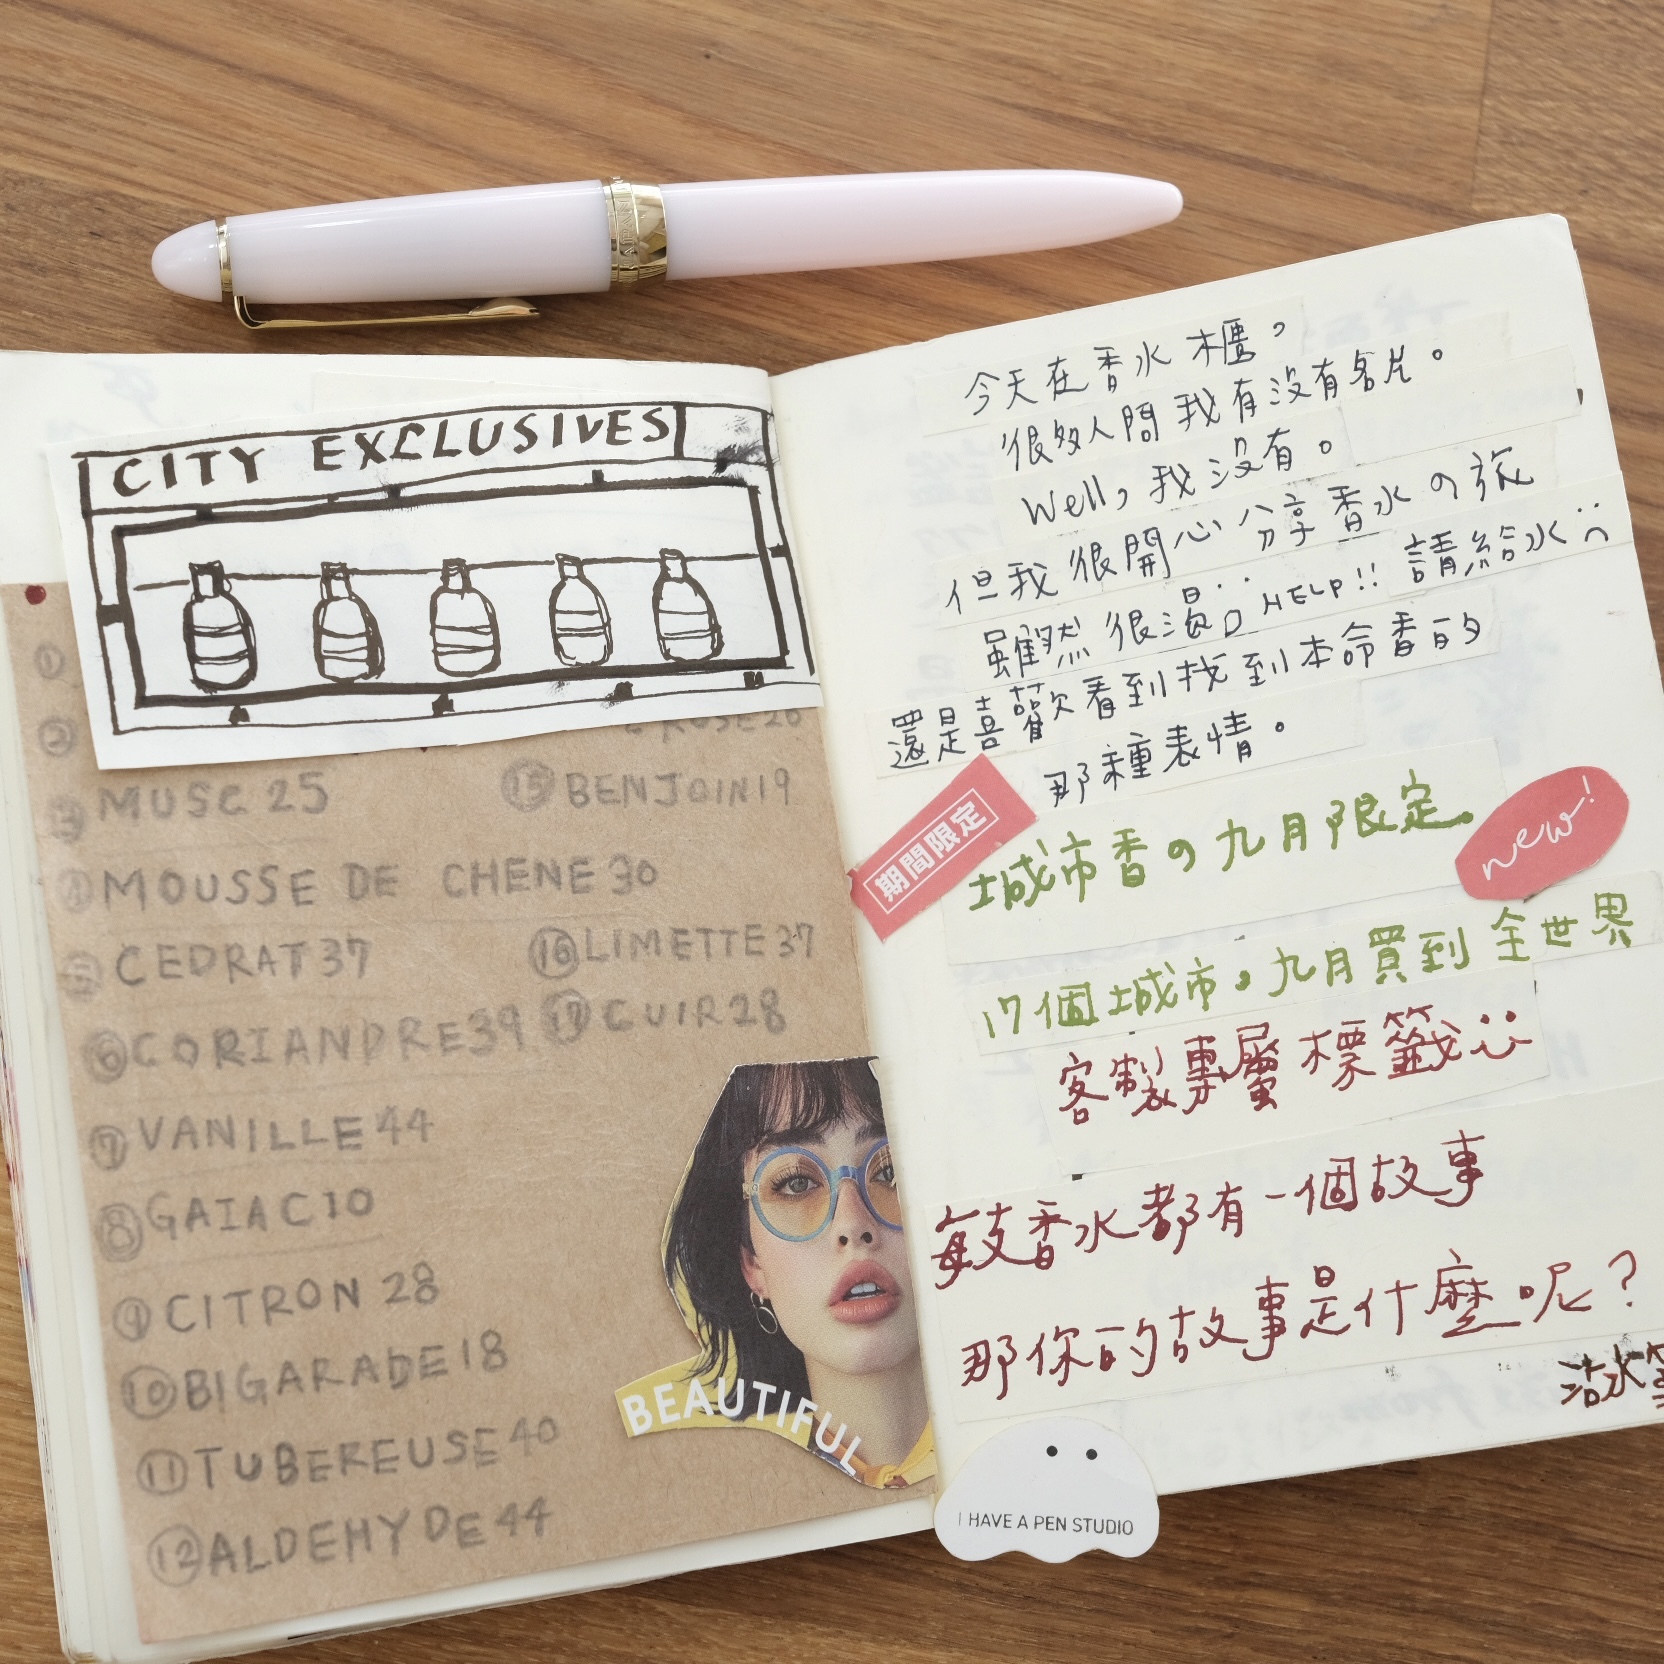 CITY EXCLUSIVES
①
②
ROSE
③ MUSC 25
⑮ BENJOIN 19
④ MOUSSE DE CHENE 30
⑤ CEDRAT 37
⑯ LIMETTE 37
⑥ CORIANDRE 39
⑰ CUIR 28
⑦ VANILLE 44
⑧ GAIAC 10
⑨ CITRON 28
⑩ BIGARADE 18
⑪ TUBEREUSE 40
⑫ ALDEHYDE 44
BEAUTIFUL
今天在香水櫃，
很多人問我有沒有名片。
Well, 我沒有。
但我很開心分享香水の旅
雖然很渴 HELP!! 請給水
還是喜歡看到找到本命香的
那種表情。
期間限定
城市香の九月限定。
new!
17個城市。九月買到全世界
客製專屬標籤
每支香水都有一個故事
那你的故事是什麼呢？
I HAVE A PEN STUDIO